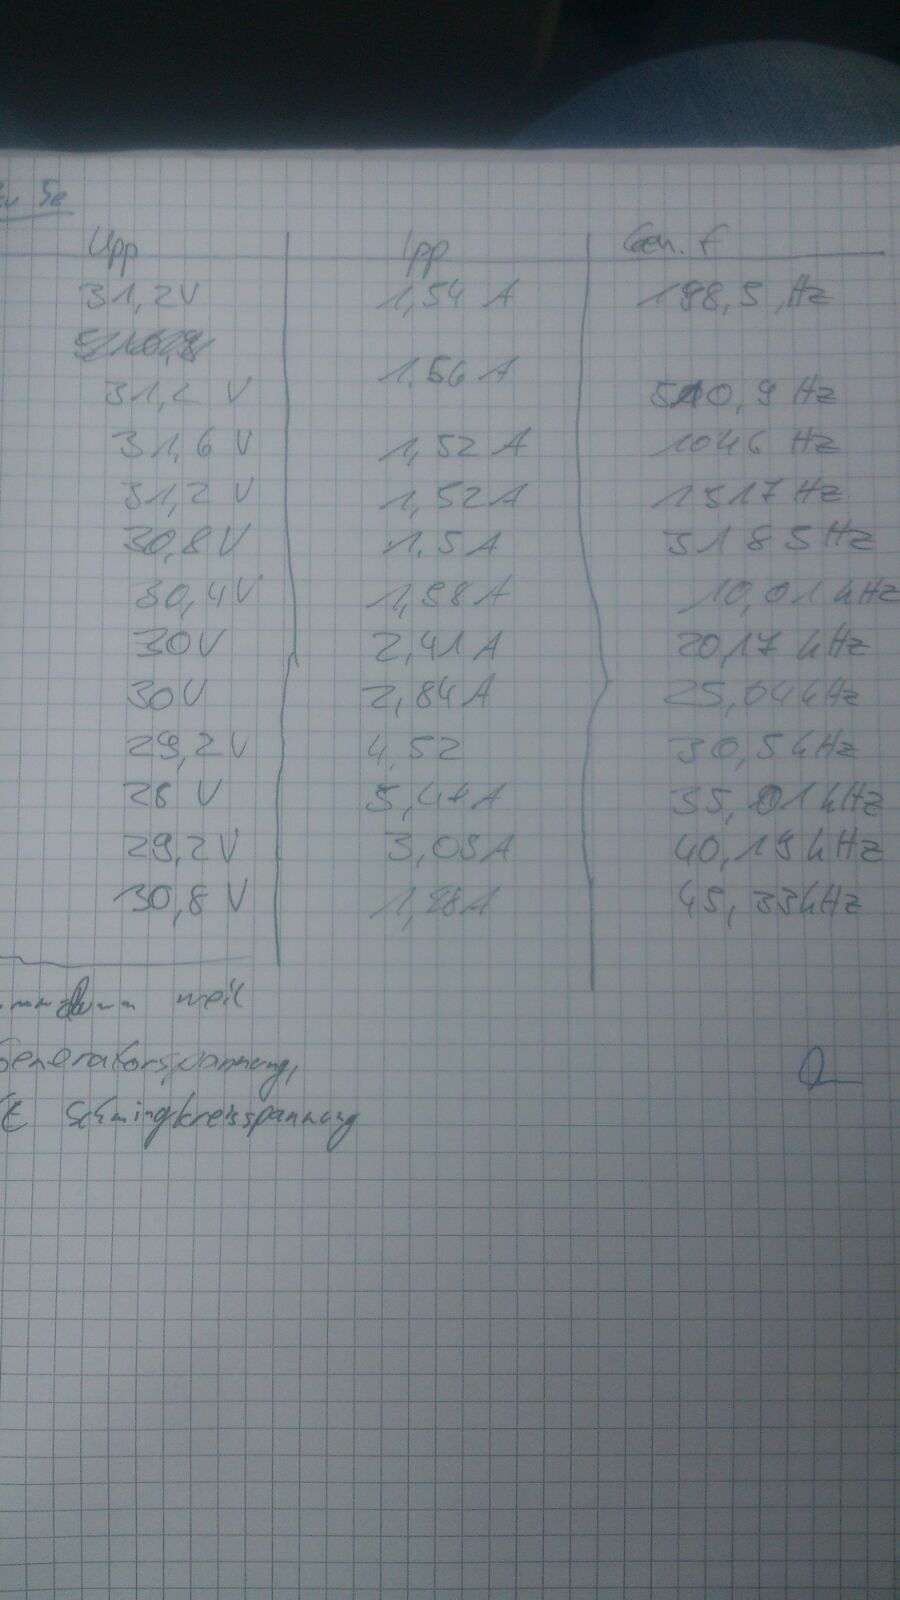 zu 5e
Upp Ipp Gen. f
31,2V 1,54 A 198,5 Hz
1.56 A
31,2 V 510,9 Hz
31,6 V 1,52 A 1046 Hz
31,2 V 1,52A 1517 Hz
30,8V 1.5A 3185Hz
30,4V 1,98A 10,01kHz
30V 2,41A 20,17 kHz
30V 2,84A 25,04kHz
29,2V 4,52 30,5kHz
28 V 35,01kHz
29,2V 3,05A 40,19kHz
30,8 V 45,33kHz
weil
Generatorspannung,
Schwingkreisspannung